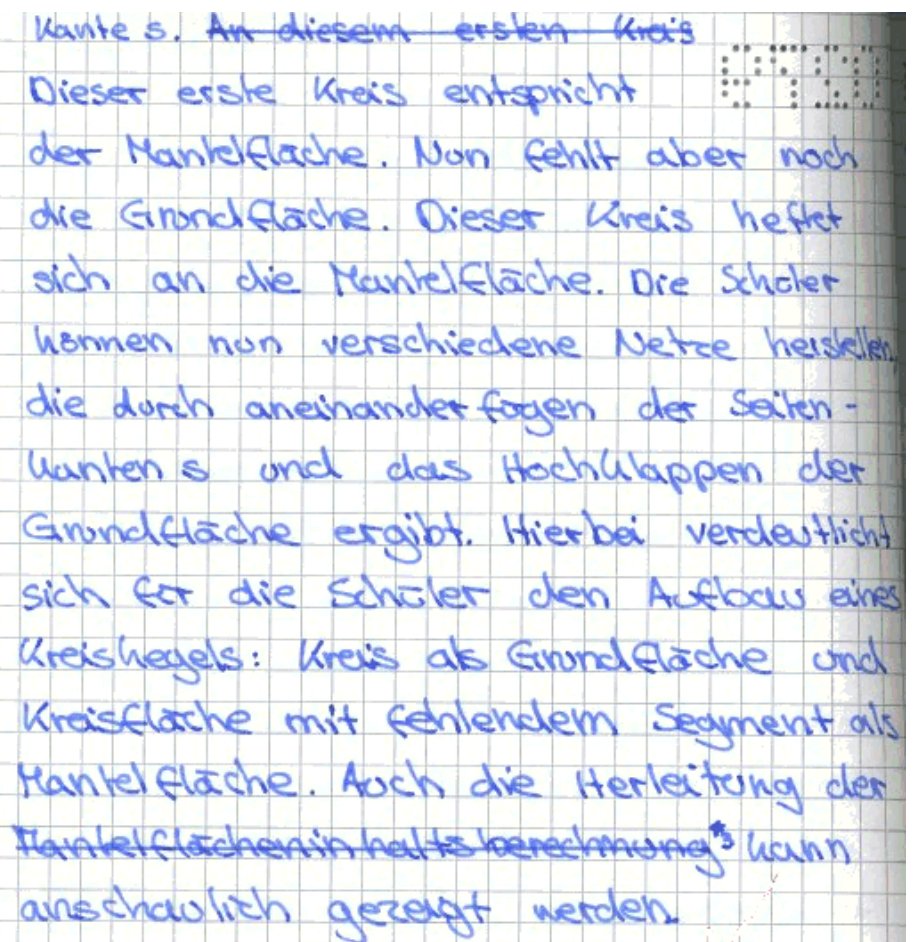 Kante s. An diesem ersten Kreis
Dieser erste Kreis entspricht
der Mantelfläche. Nun fehlt aber noch
die Grundfläche. Dieser Kreis heftet
sich an die Mantelfläche. Die Schüler
können nun verschiedene Netze herstellen,
die durch aneinanderfügen der Seiten-
kanten s und das Hochklappen der
Grundfläche ergibt. Hierbei verdeutlicht
sich für die Schüler den Aufbau eines
Kreiskegels: Kreis als Grundfläche und
Kreisfläche mit fehlendem Segment als
Mantelfläche. Auch die Herleitung der
Mantelflächeninhaltsberechnung kann
anschaulich gezeigt werden.